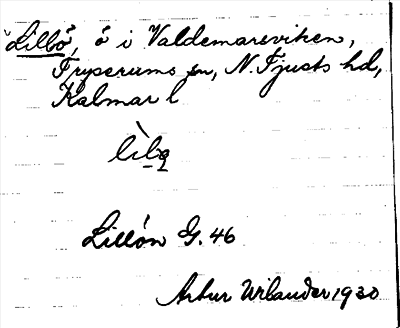 Lillö, ö i Valdemarsviken,
Tryserums sn, N. Tjusts hd,
Kalmar l
Lillön G. 46
Artur Wilander 1930